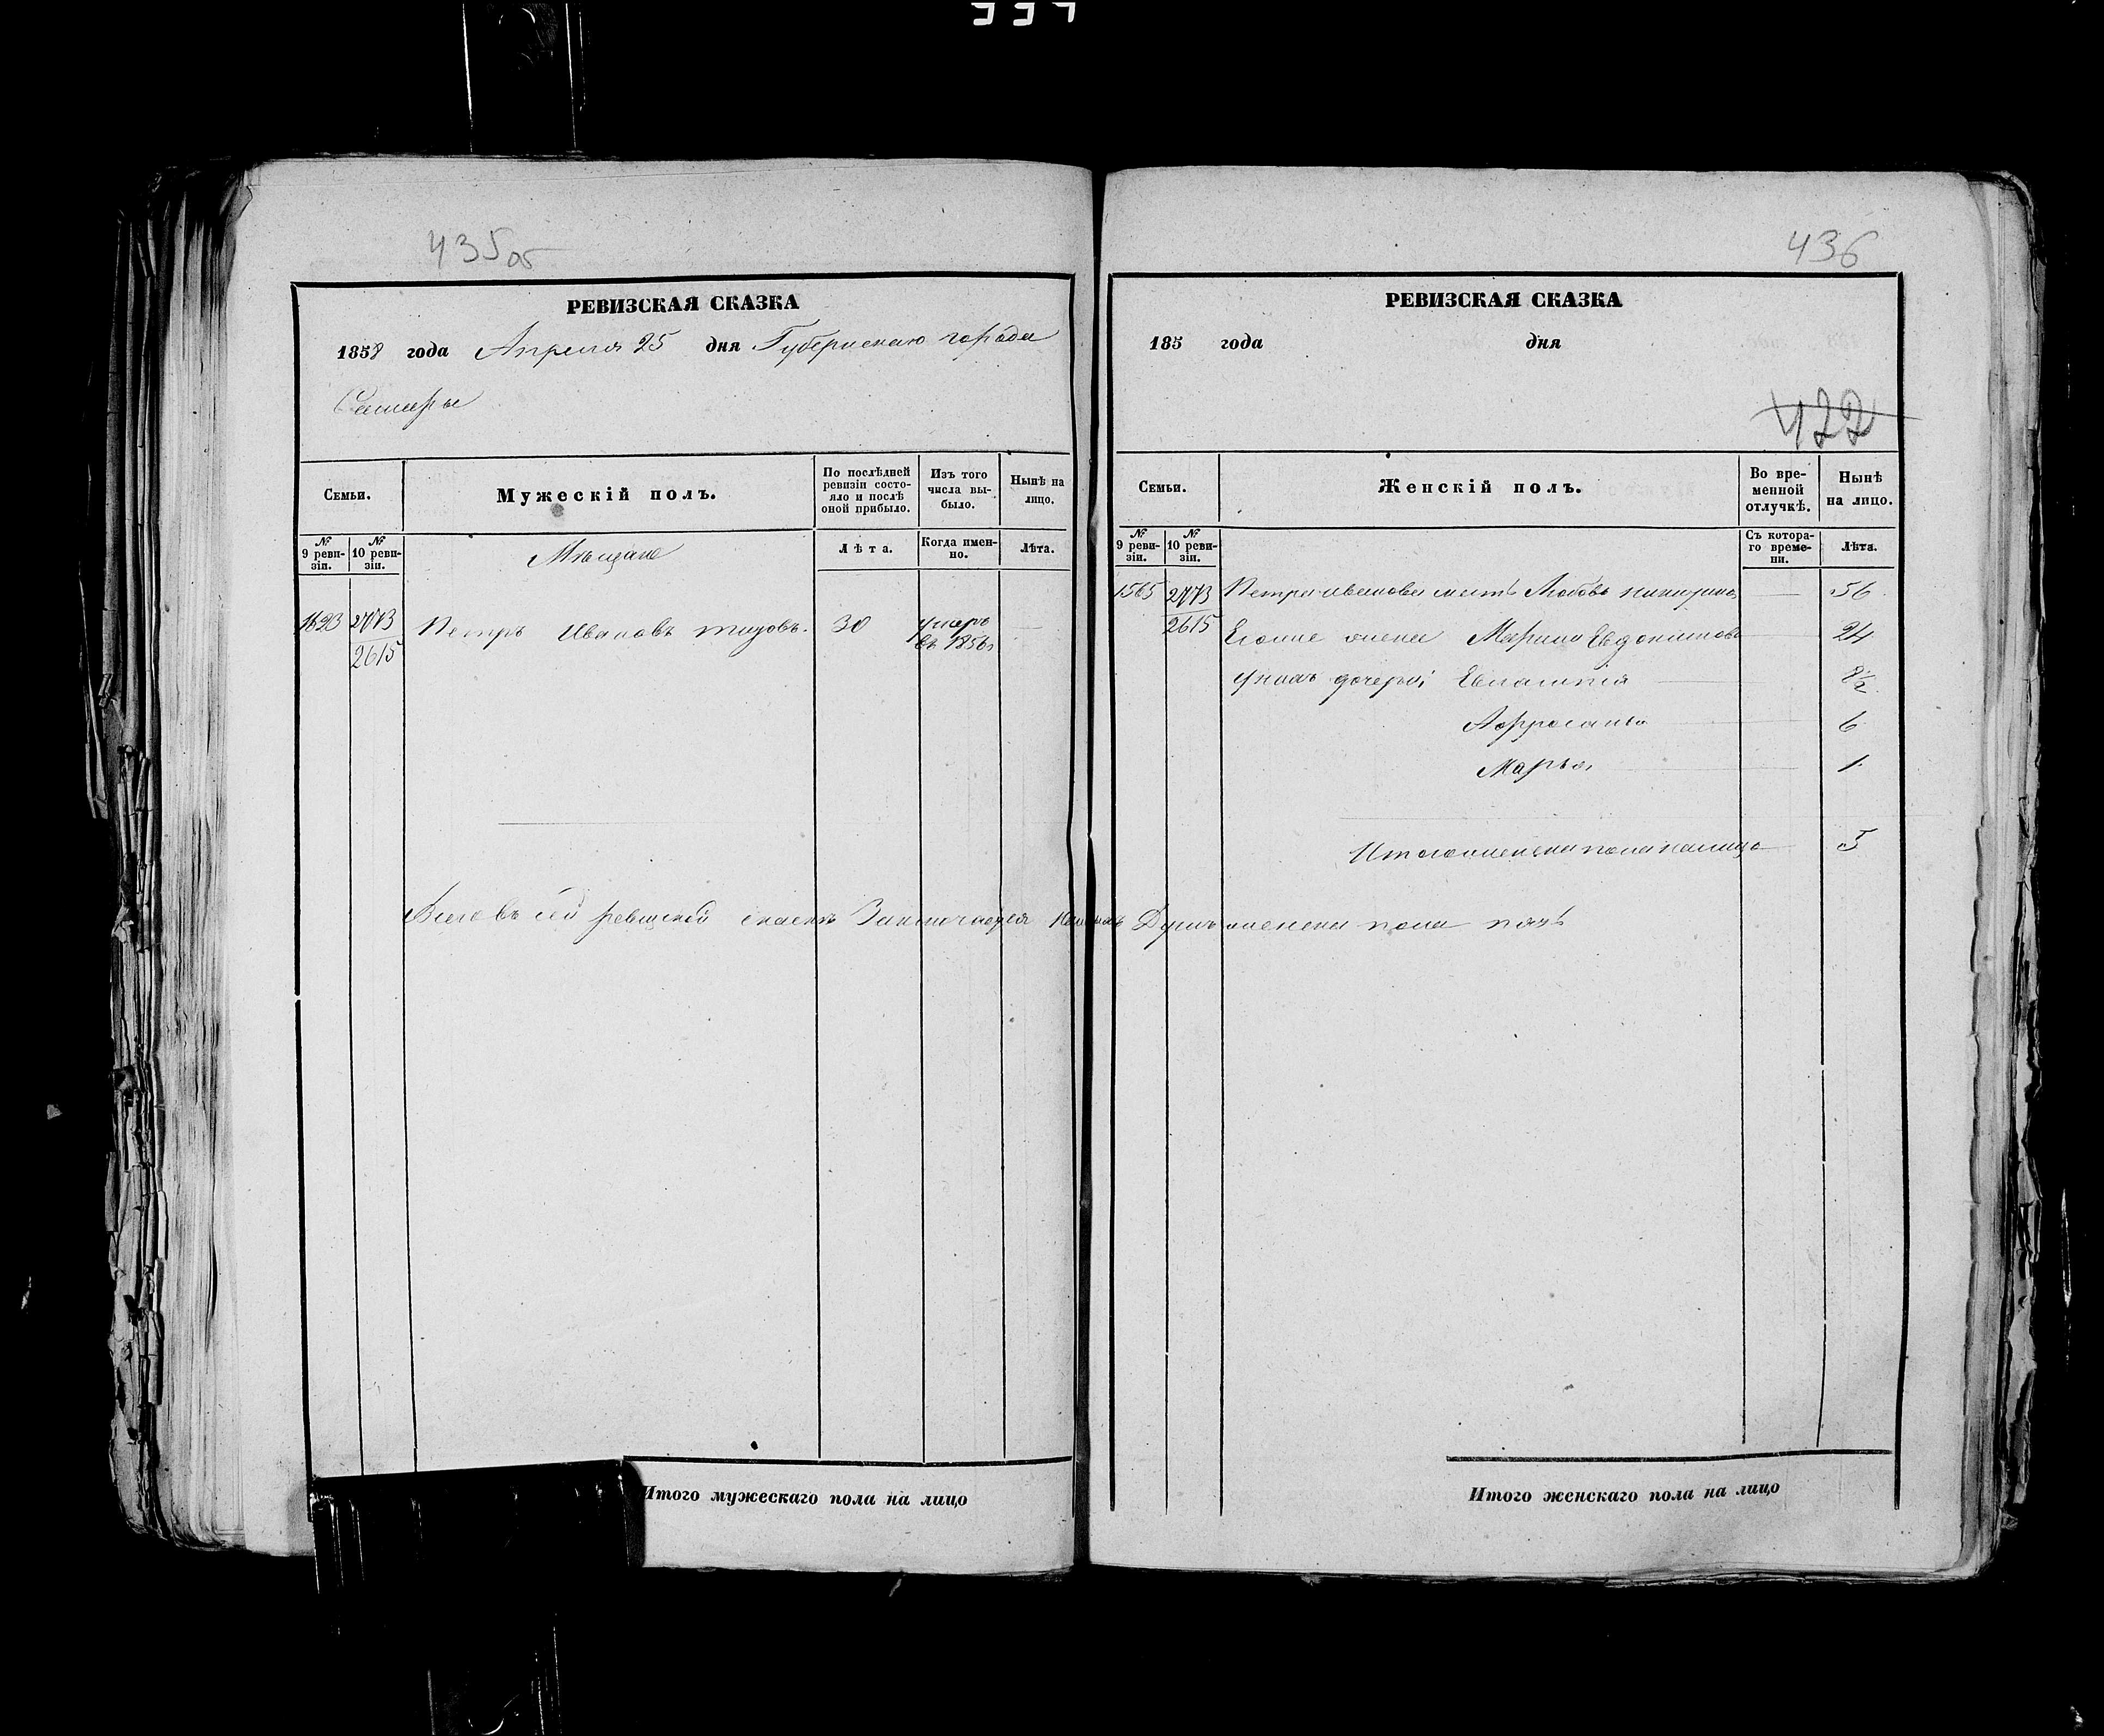 435об
РЕВИЗСКАЯ СКАЗКА
1858 года Апреля 25 дня Губернскаго города
Самары
Семьи.
Мужескій полъ.
По послѣдней
ревизіи состо-
яло и послѣ
оной прибыло.
Изъ того
числа вы-
было.
Нынѣ на
лицо.
№
9 реви-
зіи.
№
10 реви-
зіи.
Мѣщане
Лѣта.
Когда имен-
но.
Лѣта.
1623 2773 Петръ Ивановъ Титовъ. 30 умеръ
2615 въ 1856
Всего въ сей ревизской сказкѣ Заключается
Итого мужескаго пола на лицо
436
РЕВИЗСКАЯ СКАЗКА
185 года дня
422
Семьи.
Женскій полъ.
Во вре-
менной
отлучкѣ.
Нынѣ
на лицо.
№
9 реви-
зіи.
№
10 реви-
зіи.
Съ котора-
го време-
ни.
Лѣта.
1565 2773 Петра Иванова мать Любовь Никитина 56
2615 Его жена Марина Евдокимова 24
у нихъ дочерьи Евлампія 8½
Афросинья 6
Марья 1
Итого женска пола налицо 5
Душъ женска пола пять
Итого женскаго пола на лицо